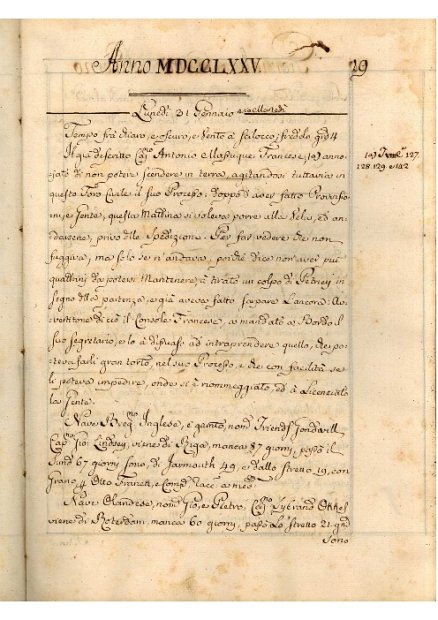 Anno MDCCLXXV. 29
Lunedì 31 Gennaio
Tempo frà chiaro, e oscuro, e Vento à scilocco; freddo grdi 4
Il quì descritto Antonio Francese (a) anno-
jato di non poter scendere in terra, agitandosi tuttavia in
questo Foro Civile il suo Processo. Doppo d'aver fatto Provisio-
ni, e Gente, questa Mattina si voleva porre alla Vela, ed an-
darsene, privo delle Spedizioni. Per far vedere che non
fuggiva, ma solo se n'andava, poiche dice non aver più
quattrini da potersi Mantenere, à tirato un colpo di in
segno della partenza, e già aveva fatto serpare l'ancora. Av-
vertitone di ciò il Console Francese, à mandato à Bordo il
suo segretario, e lo à dissuaso ad intraprendere quello, che po-
teva farli gran torto, nel suo Processo, e che con facilità se
li poteva impedire, onde si è riormeggiato, ed à Licenziato
la Gente.
Nave Inglese, nomta Friends
Gio: Lindsey, viene di Riga, manca 87 giorni, passò il
Sund 67 giorni sono, di Jarmouth 49, e dallo stretto 19, con
Grano, 4 Otto Franchi, e Compi
Nave Olandese, nomta Gio, e Pietro,
viene di Roterdam, manca 60 giorni, passò Lo stretto 21 gni
sono
127.
128. 129. e 142